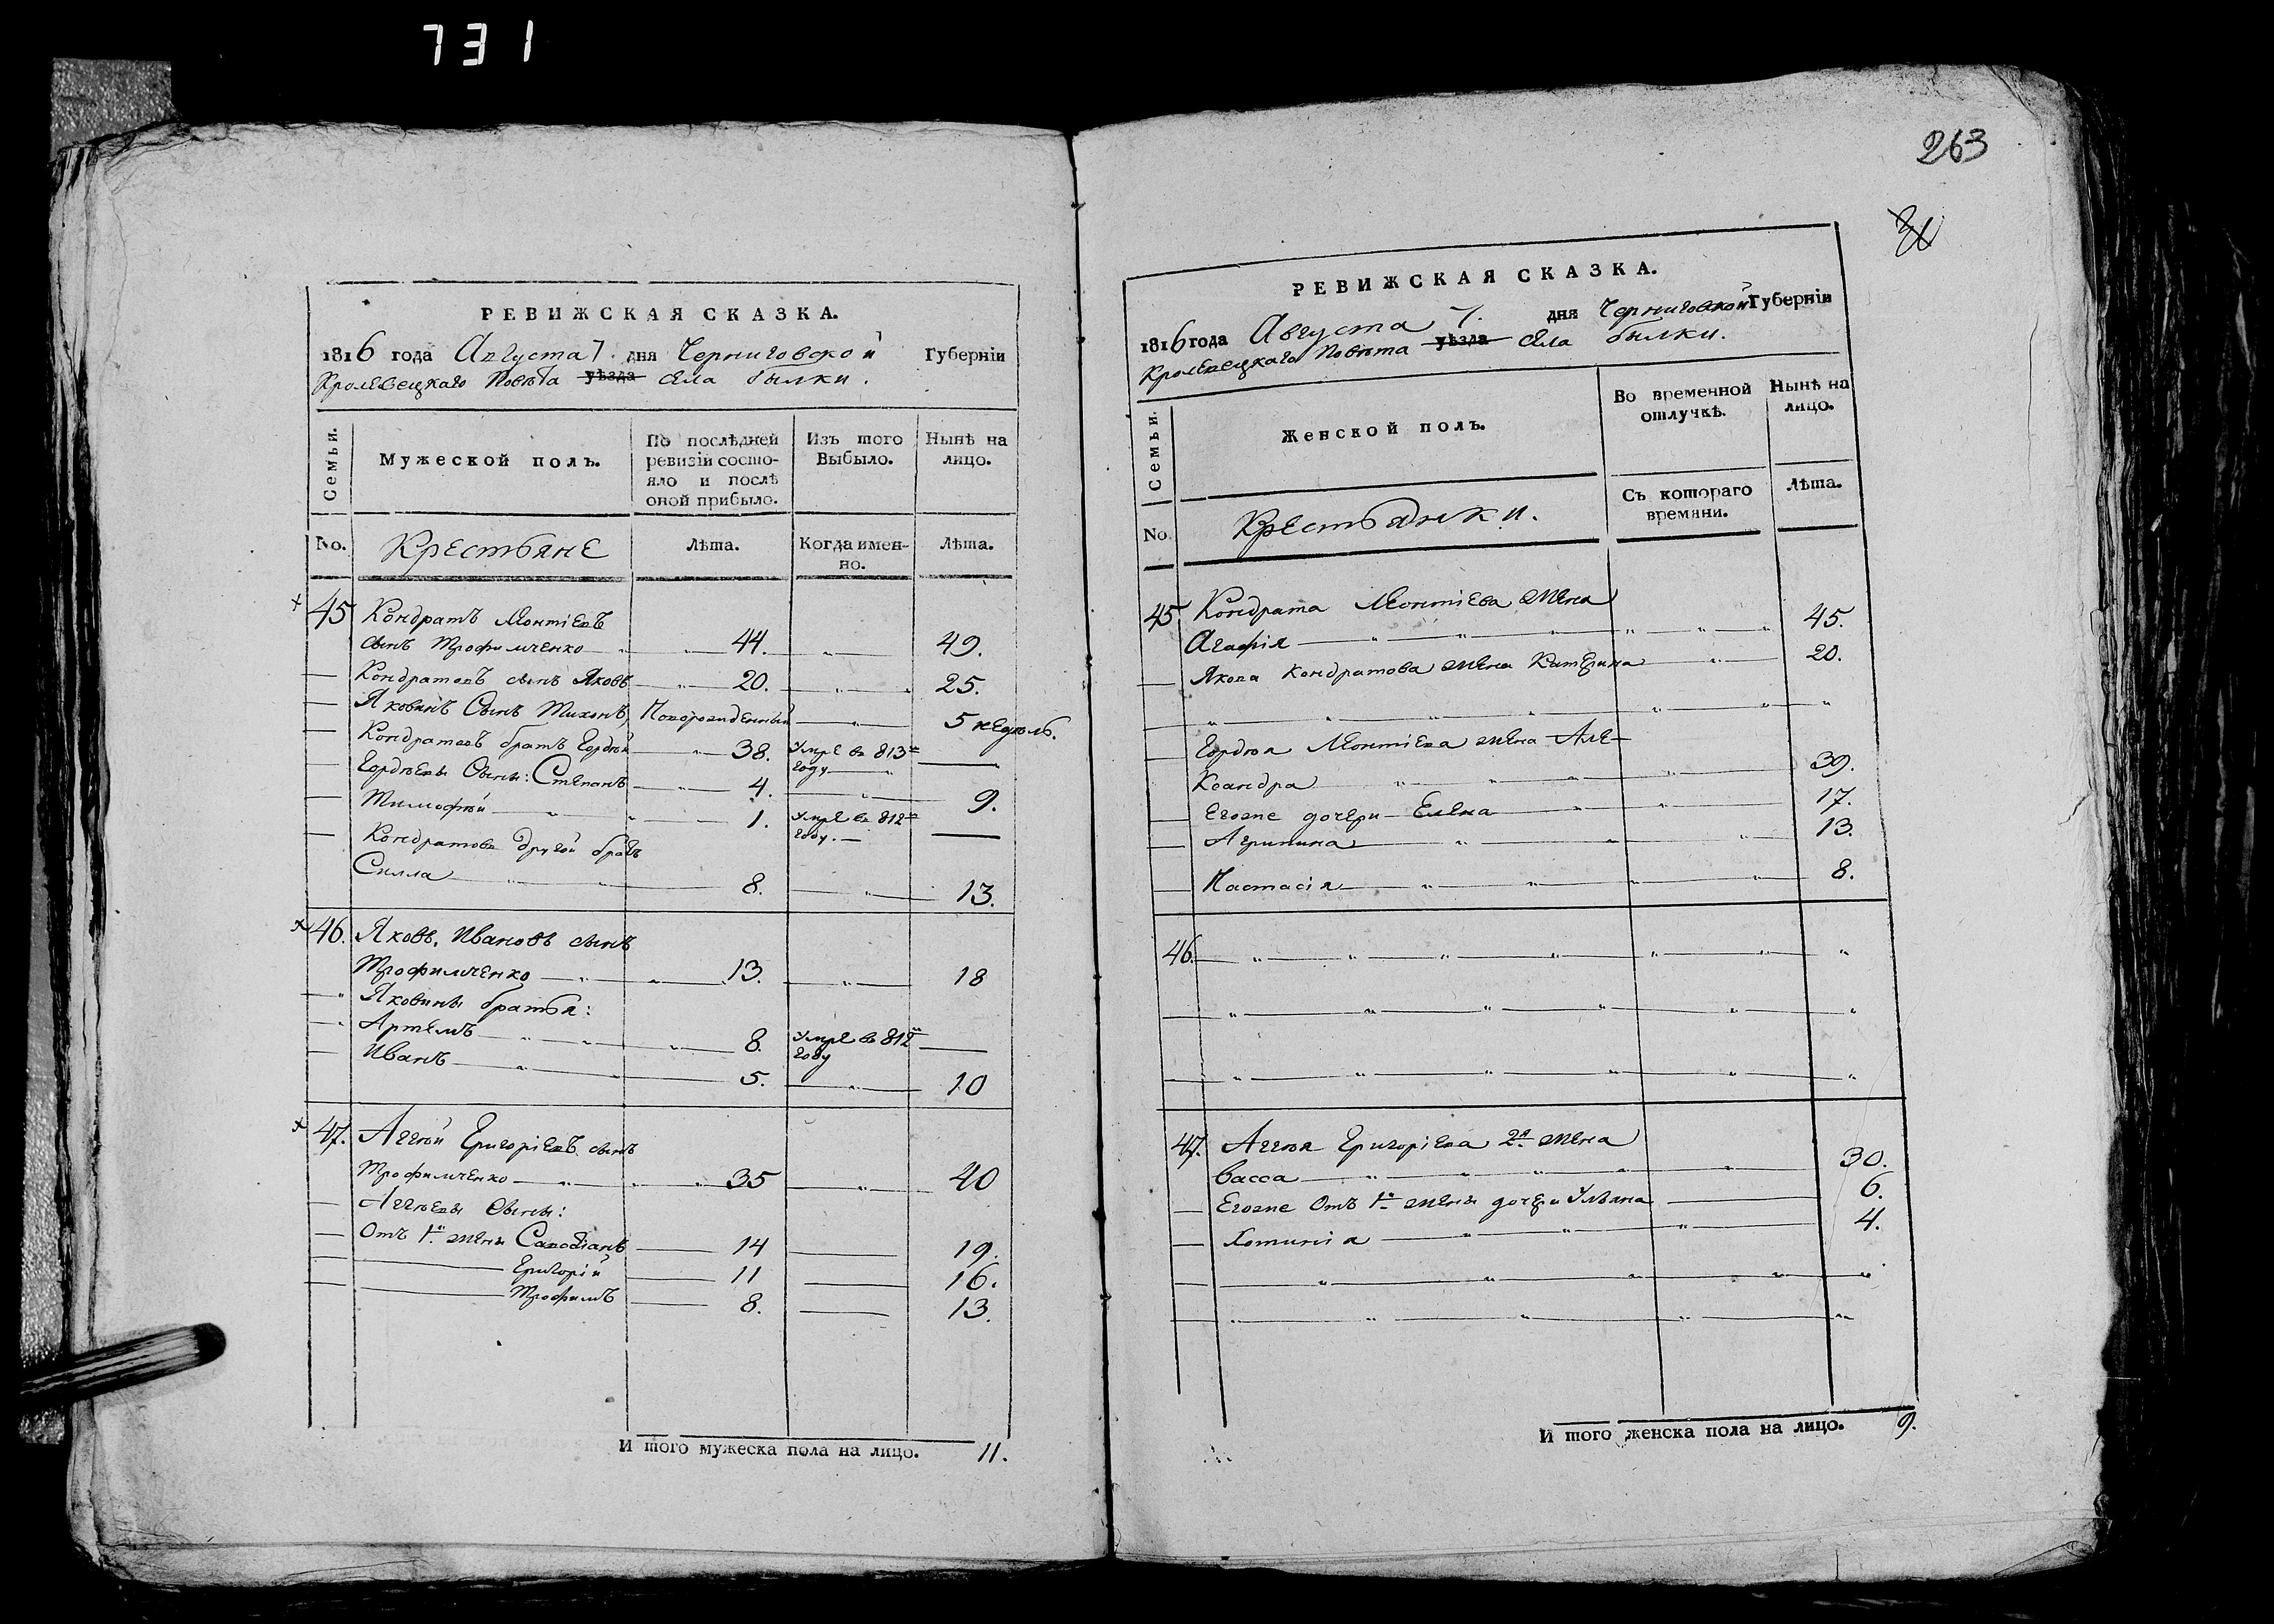 731
РЕВИЖСКАЯ СКАЗКА.
1816 года Августа 7. дня Черниговской Губерніи
Кролевецкаго Повѣта уѣзда села былки.
Семьи.
Мужеской полъ.
По послѣдней ревизіи состояло и послѣ оной прибыло.
Изъ того Выбыло.
Нынѣ на лицо.
No.
Крестьяне
Лѣта.
Когда именно.
Лѣта.
45 Кондратъ Леонтіевъ
сынъ Трофимченко 44. 49.
Кондратовъ сынъ Яковъ 20. 25.
Яковлевъ Сынъ Тихонъ Новорожденный 5 недѣль.
Кондратовъ братъ Гордѣй 38. Умре въ 813м
году
Гордѣевы Сыны: Степанъ 4. 9.
Тимофѣй 1. Умре въ 812м
году.
Кондратовъ другой братъ
Силла 8. 13.
46. Яковъ Ивановъ сынъ
Трофимченко 13. 18
Яковины братья:
Артемъ 8. Умре въ 812м
году
Иванъ 5. 10
47. Аггѣй Григоріевъ сынъ
Трофимченко 35 40
Аггѣевы Сыны:
Отъ 1й жены 14 19.
Григорій 11 16.
Трофимъ 8. 13.
И того мужеска пола на лицо. 11.
263
РЕВИЖСКАЯ СКАЗКА.
1816 года Августа 7. дня Черниговской Губерніи
Кролевецкаго Повѣта уѣзда села былки.
Семьи.
Женской полъ.
Во временной отлучкѣ.
Нынѣ на лицо.
Съ котораго времяни.
Лѣта.
No
Крестьянки.
45. Кондрата Леонтіева жена
Агафія 45.
Якова Кондратова жена Катерина 20.
Гордѣя Леонтіева жена Але-
ксандра 39.
Егоже дочери Елена 17.
Агрипина 13.
Настасія 8.
46.
47. Аггѣя Григоріева 2я жена
Васса 30.
Егоже Отъ 1й жены дочери Ульяна 6.
Хотинія 4.
И того женска пола на лицо. 9.